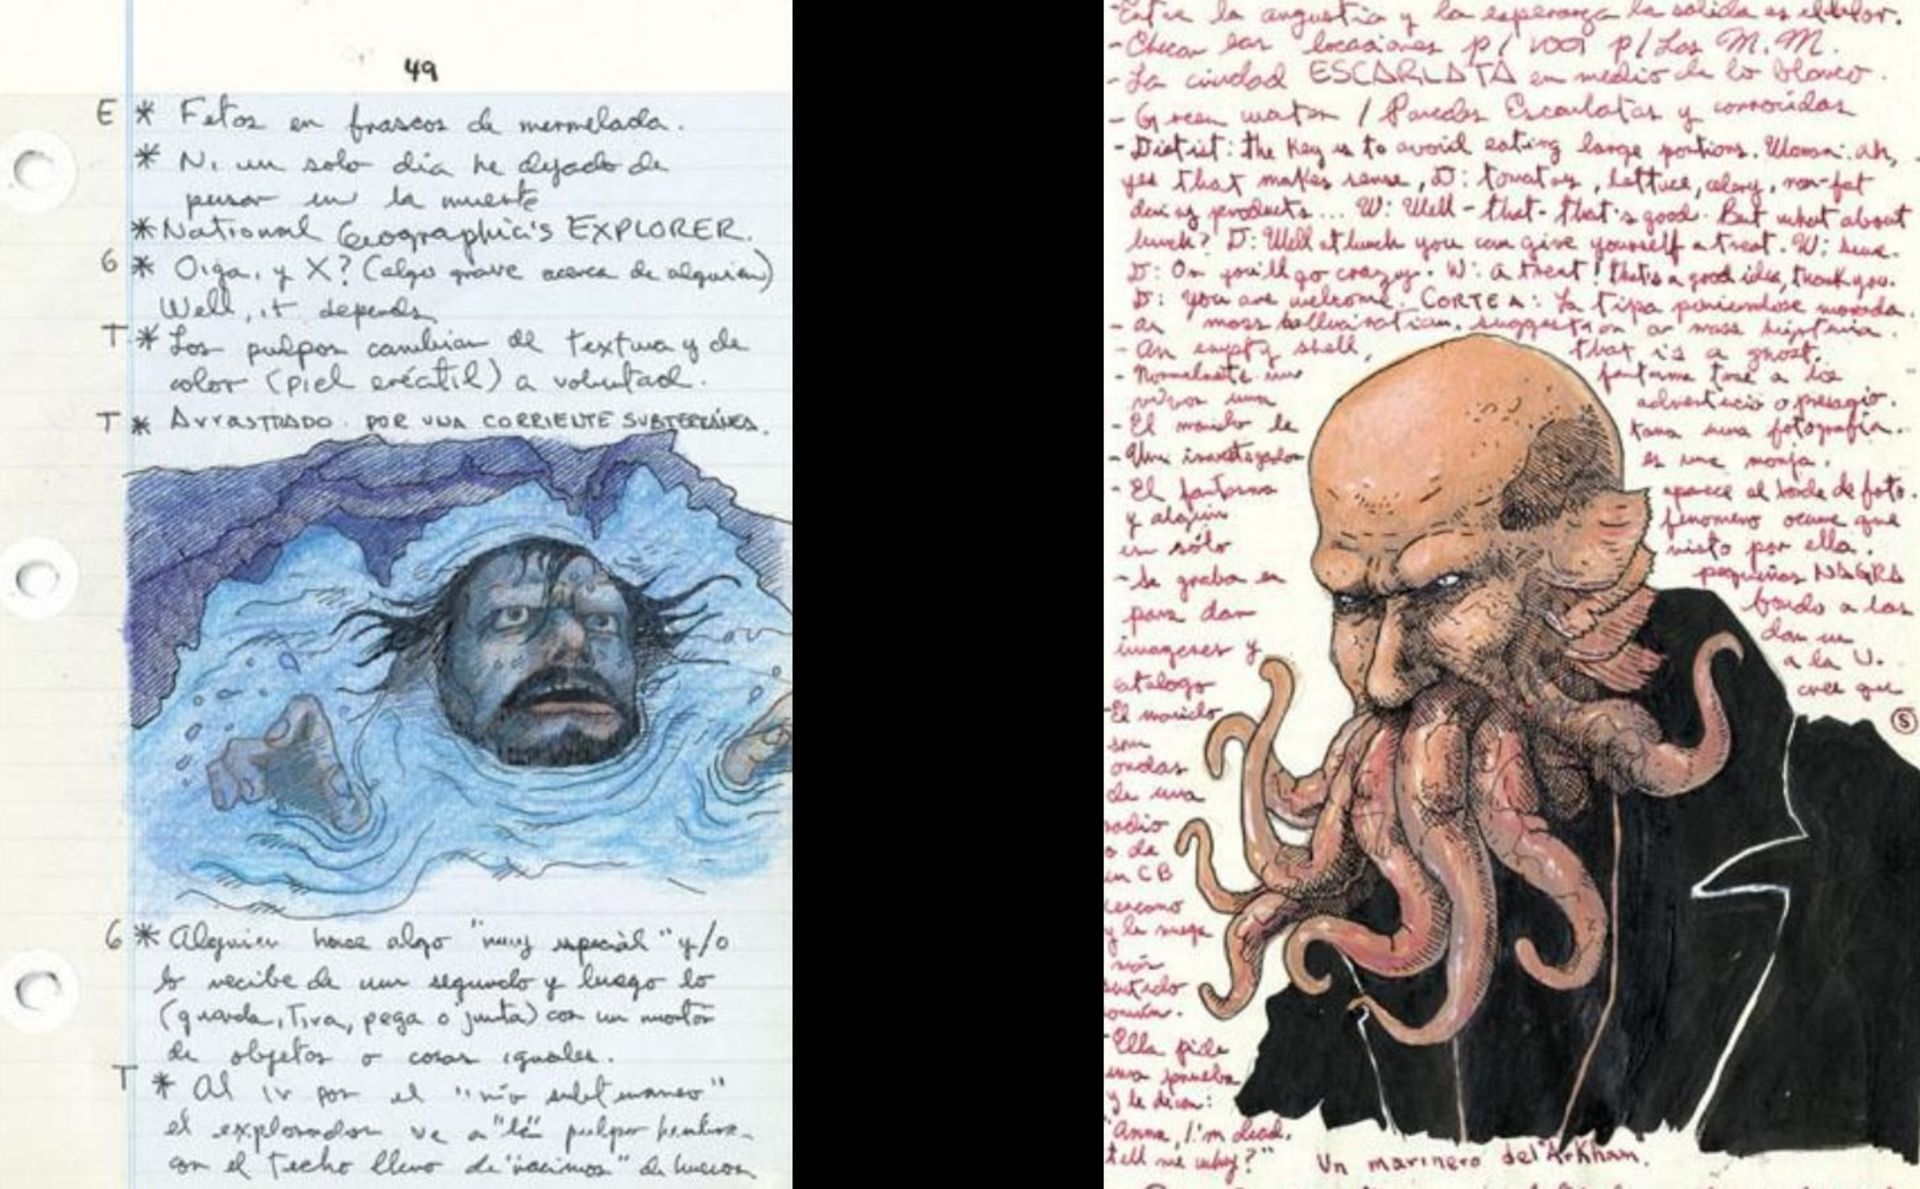 49
E * Fetos en frascos de mermelada.
* Ni un solo dia he dejado de
pensar en la muerte
* National Geographic's EXPLORER.
G * Oiga, y X? (algo grave acerca de alguien)
Well, it depends
T * Los pulpos cambian de textura y de
color (piel eréctil) a voluntad.
T * ArrASTRADO POR UNA CORRIENTE SUBTERRÁNEA.
G * Alguien hace algo "muy especial" y/o
lo recibe de un segundo y luego lo
(guarda, Tira, pega o junta) con un montón
de objetos o cosas iguales.
T * Al ir por el "río subterraneo"
el explorador ve a "la" pulpo hembra
con el techo lleno de "racimos" de huevos
- Entre la angustia y la esperanza la salida es el dolor.
- Checar las locaciones p/ p/Las M.M.
- La ciudad ESCARLATA en medio de lo blanco.
- Green water / Paredes Escarlatas y corroidas
- Dietist: the key is to avoid eating large portions. Woman: ah,
yes that makes sense, D: tomatoes, lettuce, celery, non-fat
dairy products... W: Well - that - that's good. But what about
lunch? D: Well at lunch you can give yourself a treat. W: sure.
D: Or you'll go crazy. W: a treat! that's a good idea, thank you.
D: you are welcome. CORTE A: La tipa poniendose morada.
- a mass hallucination, suggestion or mass hysteria.
- An empty shell, that is a ghost.
- Normalmente un fantasma trae a los
vivos una advertencia o presagio.
- El marido le toma una fotografía.
- Una investigadora es una monja.
- El fantasma aparece al borde de foto.
y alguien fenomeno ocurre que
es sólo visto por ella.
- Se graba en pequeñas NAGRA
para dar bordo a las
imagenes y dan un
catalogo a la U.
- El marido cree que
son
ondas
de una
radio
o de
un CB
cercano
y la niega
más
sentido
común.
- Ella pide
una prueba
y le dicen:
"Anna, I'm dead,
tell me why?"
S
Un marinero del Arkham.